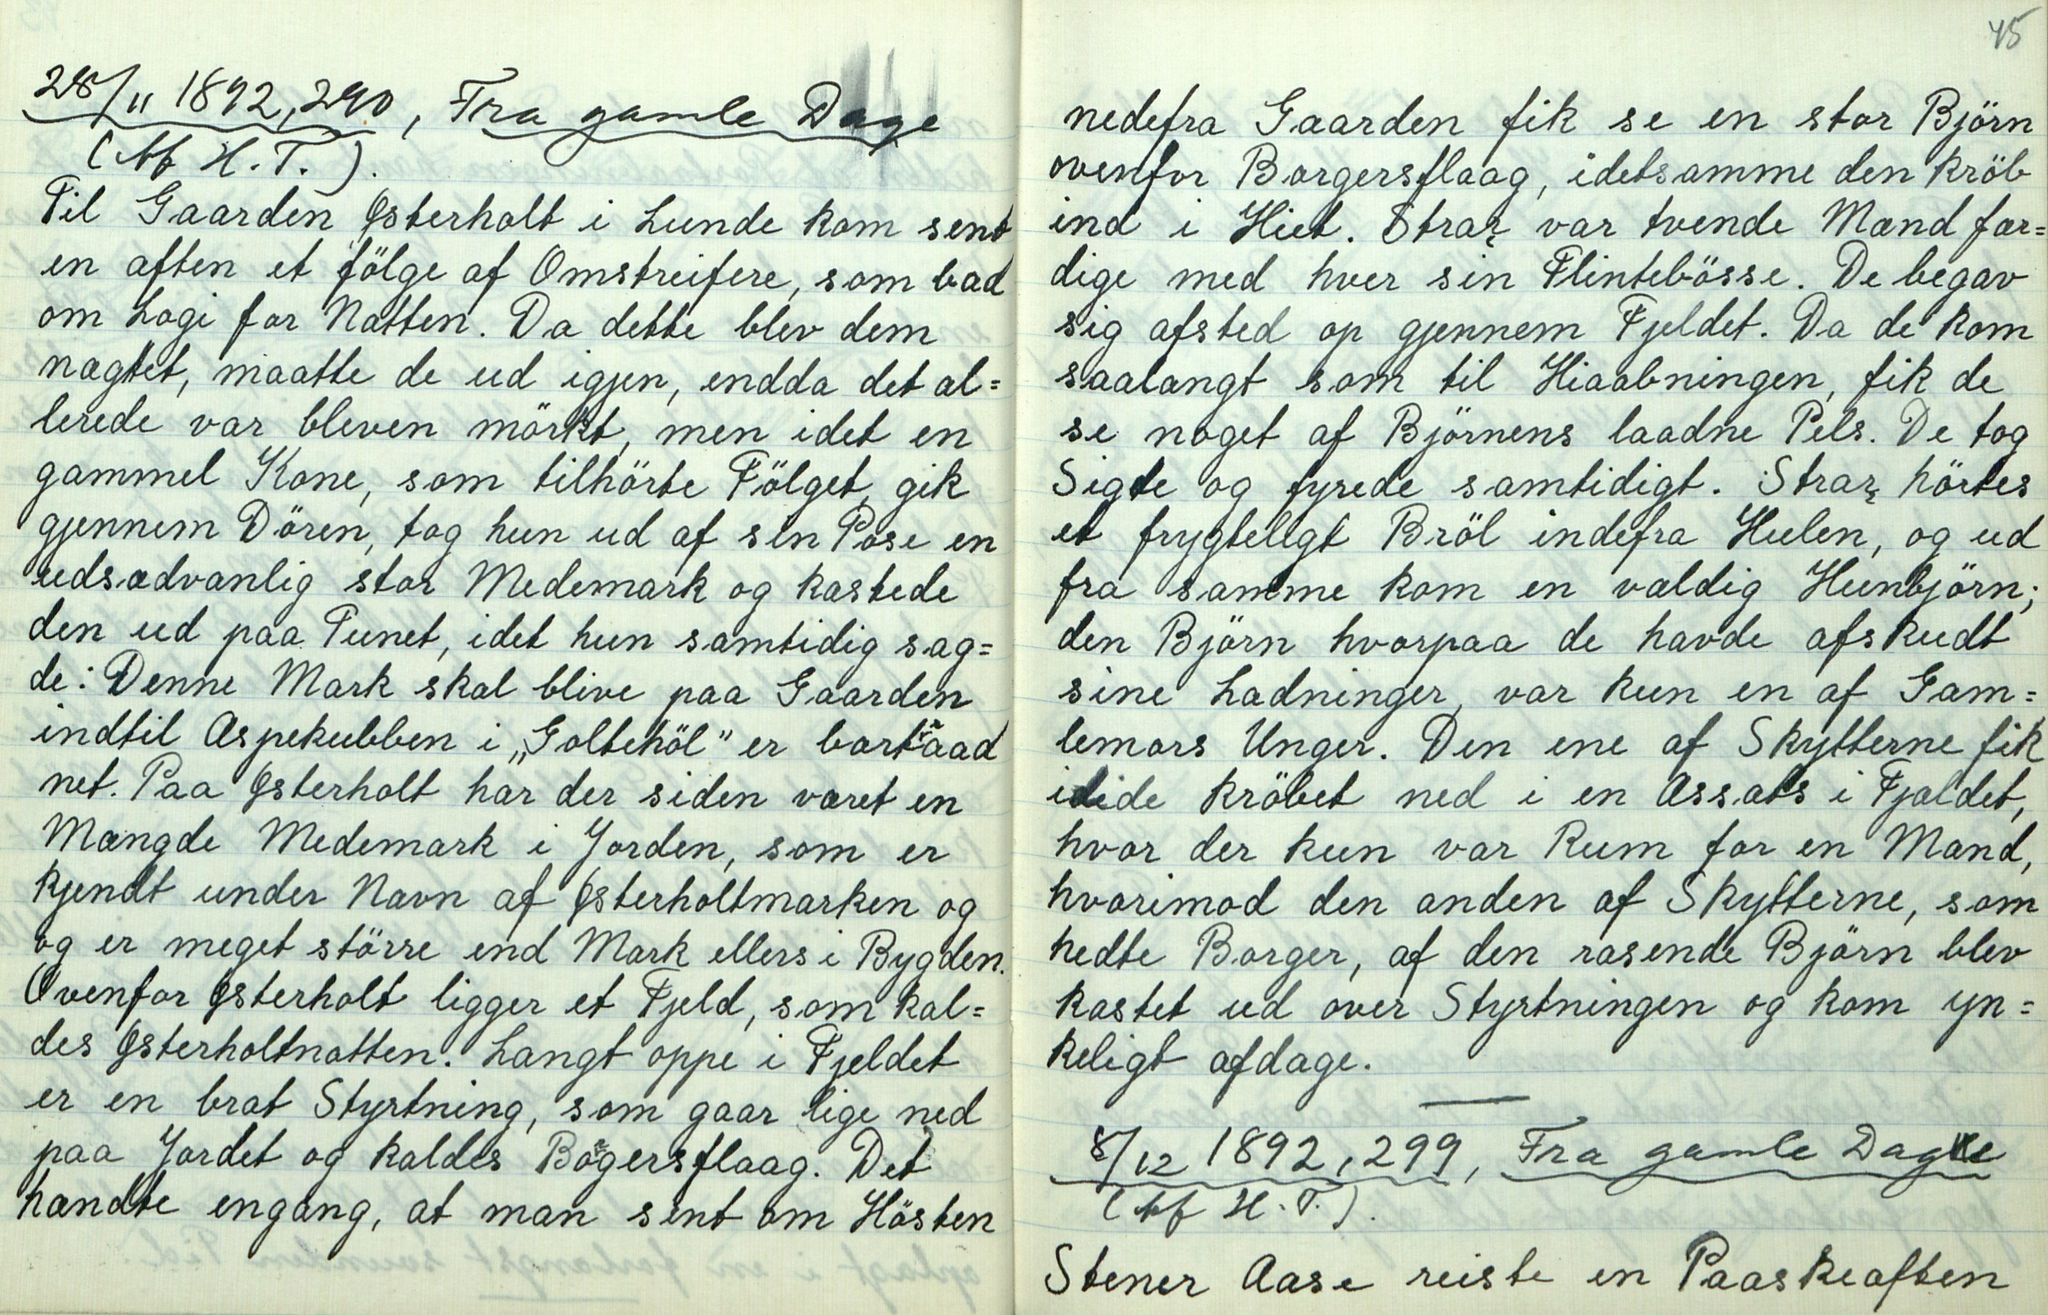 28/11 1892, 290, Fra gamle Dage
(Af H. T.).
Til Gaarden Østerholt i Lunde kom sent
en aften et følge af Omstreifere, som bad
om Logi for Natten. Da dette blev dem
nægtet, maatte de ud igjen, endda det al=
lerede var bleven mörkt, men idet en
gammel Kone, som tilhörte Fölget, gik
gjennem Dören, tog hun ud af sin Pose en
udsædvanlig stor Medemark og kastede
den ud paa Tunet, idet hun samtidig sag=
de: Denne Mark skal blive paa Gaarden
indtil Aspekubben i „Golteköl" er bortraad
net. Paa Østerholt har der siden været en
Mængde Medemark i Jorden, som er
kjendt under Navn af Østerholtmarken og
og er meget större end Mark ellers i Bygden.
Ovenfor Østerholt ligger et Fjeld, som kal=
des Østerholtnatten. Langt oppe i Fjeldet
er en brat Styrtning, som gaar lige ned
paa Jordet og kaldes Borgersflaag. Det
hændte engang, at man sent om Hösten
45
nedefra Gaarden fik se en stor Björn
ovenfor Borgersflaag, idetsamme den kröb
ind i Hiet. Strax var tvende Mænd fær=
dige med hver sin Flintebösse. De begav
sig afsted op gjennem Fjeldet. Da de kom
saalangt som til Hiaabningen, fik de
se noget af Björnens laadne Pels. De tog
Sigte og fyrede samtidigt. Strax hörtes
et frygteligt Bröl indefra Hulen, og ud
fra samme kom en vældig Hunbjörn;
den Björn hvorpaa de havde afskudt
sine Ladninger, var kun en af Gam=
lemors Unger. Den ene af Skytterne fik
kröbet ned i en Assats i Fjældet,
hvor der kun var Rum for en Mand,
hvorimod den anden af Skytterne, som
hedte Borger, af den rasende Björn blev
kastet ud over Styrtningen og kom yn=
keligt afdage.
8/12 1892, 299, Fra gamle Dage
(Af H. T.).
Stener Aase reiste en Paaskeaften